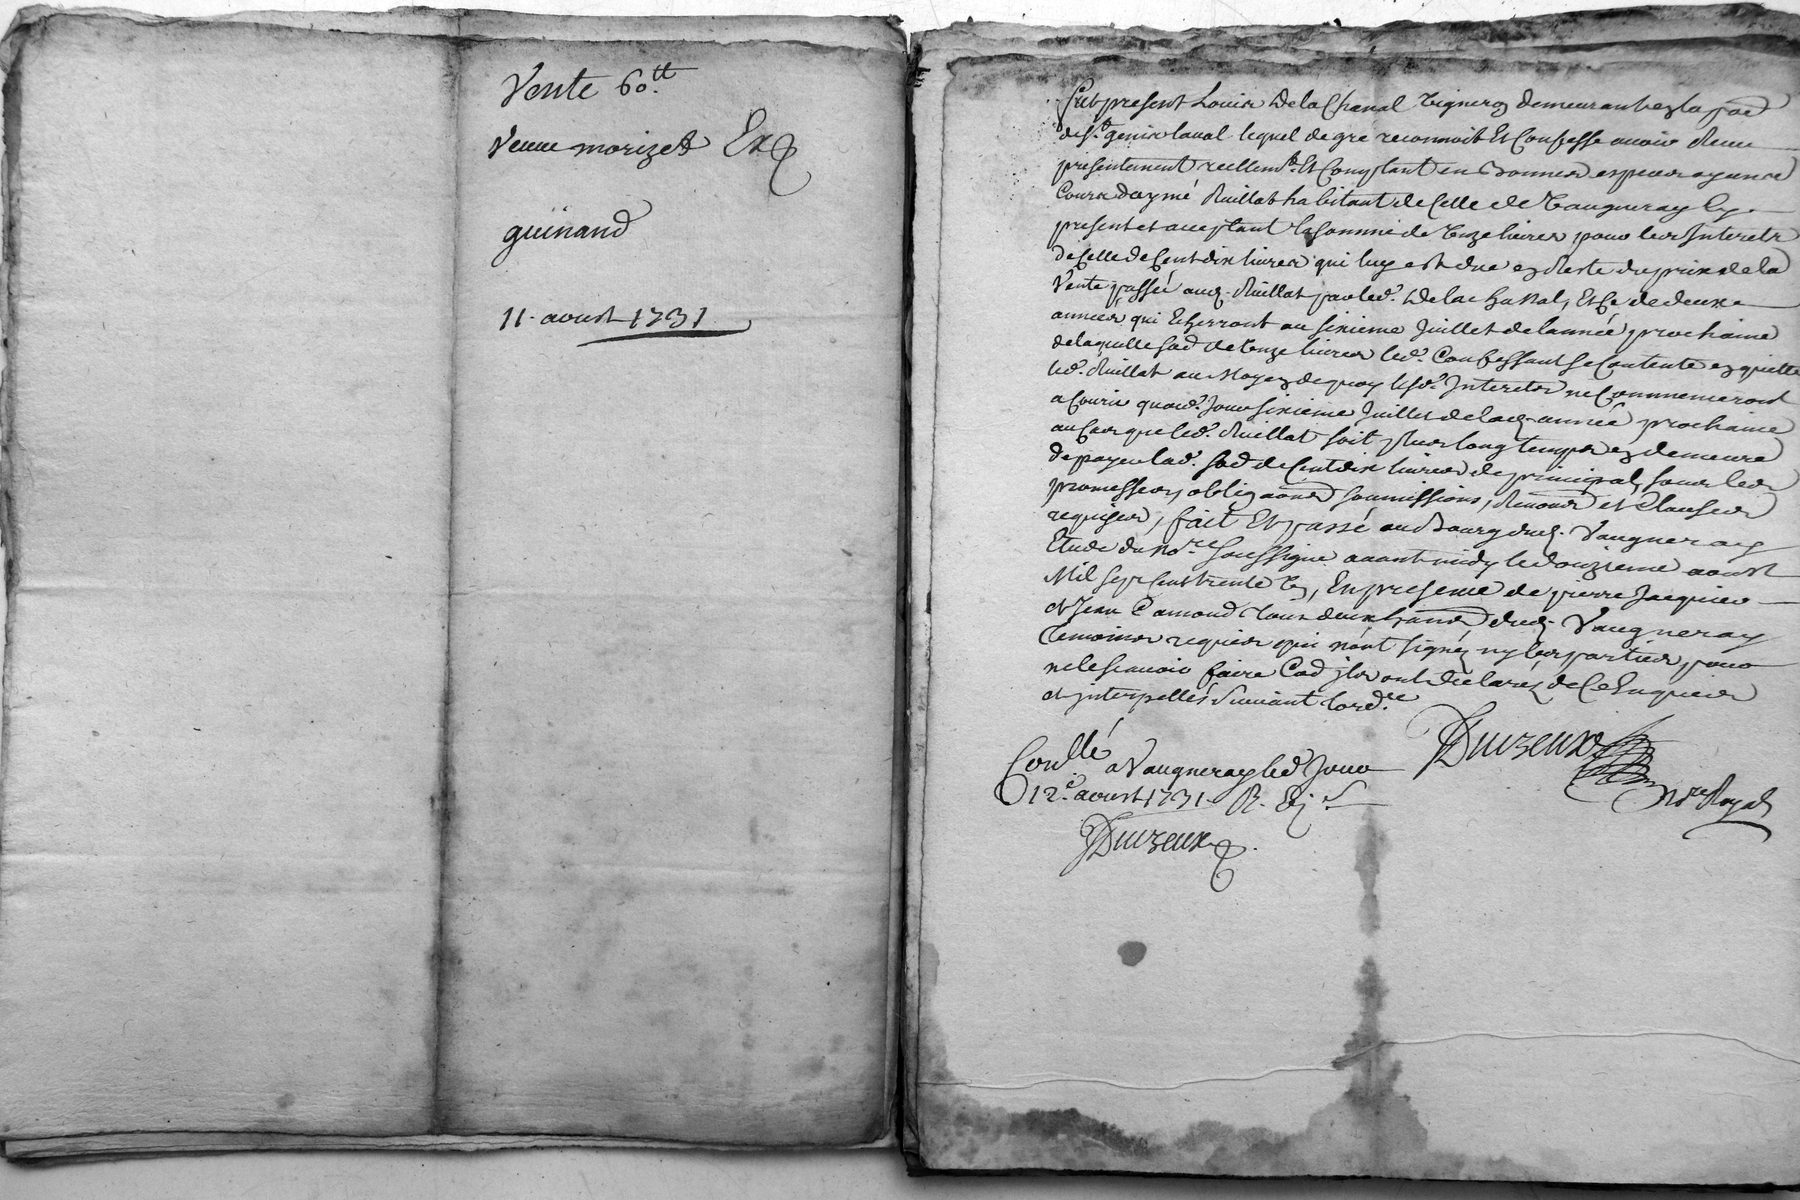 Vente 60.tt
veuve morizet Ex
guinand
11. aoust 1731
fut present Louis Delachanal vigneron demeurant en la pad
de st. genis laval lequel de gré reconnoit Et Confesse avoir Receu
presentement reellemt. Et Comptant en Bonnes especes ayence
Cours daymé Ruillat habitant de Celle de Vaugneray Cy
present et acceptant la somme de Onze livres pour les Interets
de Celle de Cent dix livres qui luy est due en Reste du prix de la
Vente passée aud. Ruillat par led. Delachanal, Et Ce de deux
années qui Echerront au sixieme Juillet de lannée prochaine
de laquelle sod de Onze livres led. Confessant se Contente en quitte
led. Ruillat au Moyen de quoy lesd. Interets ne Commenceront
a Courir quaud. Jour sixieme Juillet de lad. année prochaine
au Cas que led. Ruillat soit plus long temps en demeure
de payer lad. sod de Cent dix livres de principal, sous les
promesses, obligaons soumissions, Renons et Clauses
requises, fait Et passé au Bourg dud. Vaugneray
Etude du Nore soussigné avant midy le douzieme aoust
Mil sept Cent trente Un, En presence de pierre Jacquier
et Jean Camond tous deux hans dud. Vaugneray
temoins requis qui n'ont signéz ny les parties pour
ne le scavoir faire Cad ils ont declaréz de Ce Enquis
et jnterpellés suivant lord.ce
Duvzeux
Nore Royal
Conllé a Vaugneray led Jour
12.e aoust 1731. R.
Duvzeux